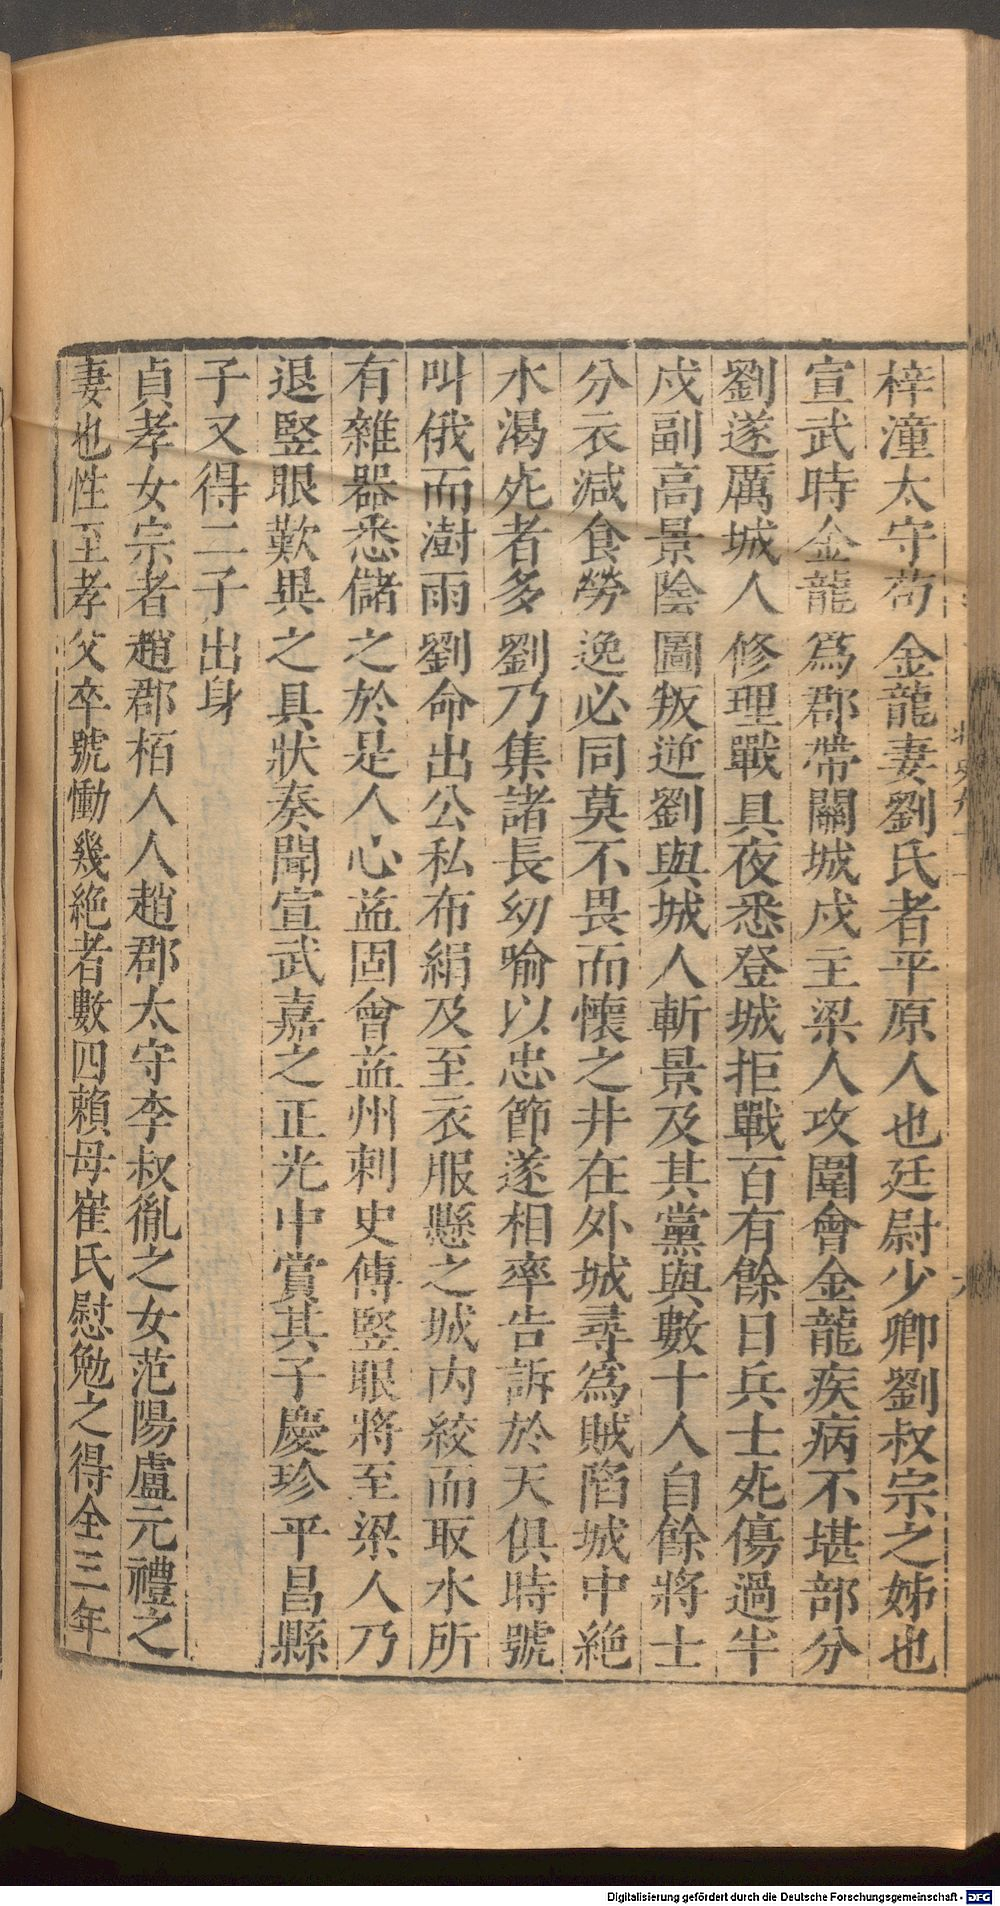 梓潼太守苟金龍妻劉氏者平原人也廷尉少卿劉叔宗之姊也
宣武時金龍爲郡帶關城戍主梁人攻圍會金龍疾病不堪部分
劉遂厲城人修理戰具夜悉登城拒戰百有餘日兵士死傷過半
戍副高景陰圖叛逆劉與城人斬景及其黨與數十人自餘將士
分衣減食勞逸必同莫不畏而懷之井在外城尋爲賊陷城中絶
水渴死者多劉乃集諸長幼喻以忠節遂相率告訴於天俱時號
叫俄而澍雨劉命出公私布絹及至衣服懸之城內絞而取水所
有雜器悉儲之於是人心益固會益州刺史傅竪眼將至梁人乃
退竪眼歎與之具狀奏聞宣武嘉之正光中賞其子慶珍平昌縣
子又得二子出身
貞孝女宗者趙郡栢人人趙郡太守李叔胤之女范陽盧元禮之
妻也性至孝父卒號慟幾絶者數四賴母崔氏慰勉之得全三年
Digitalisierung gefördert durch die Deutsche Forschungsgemeinschaft - DFG